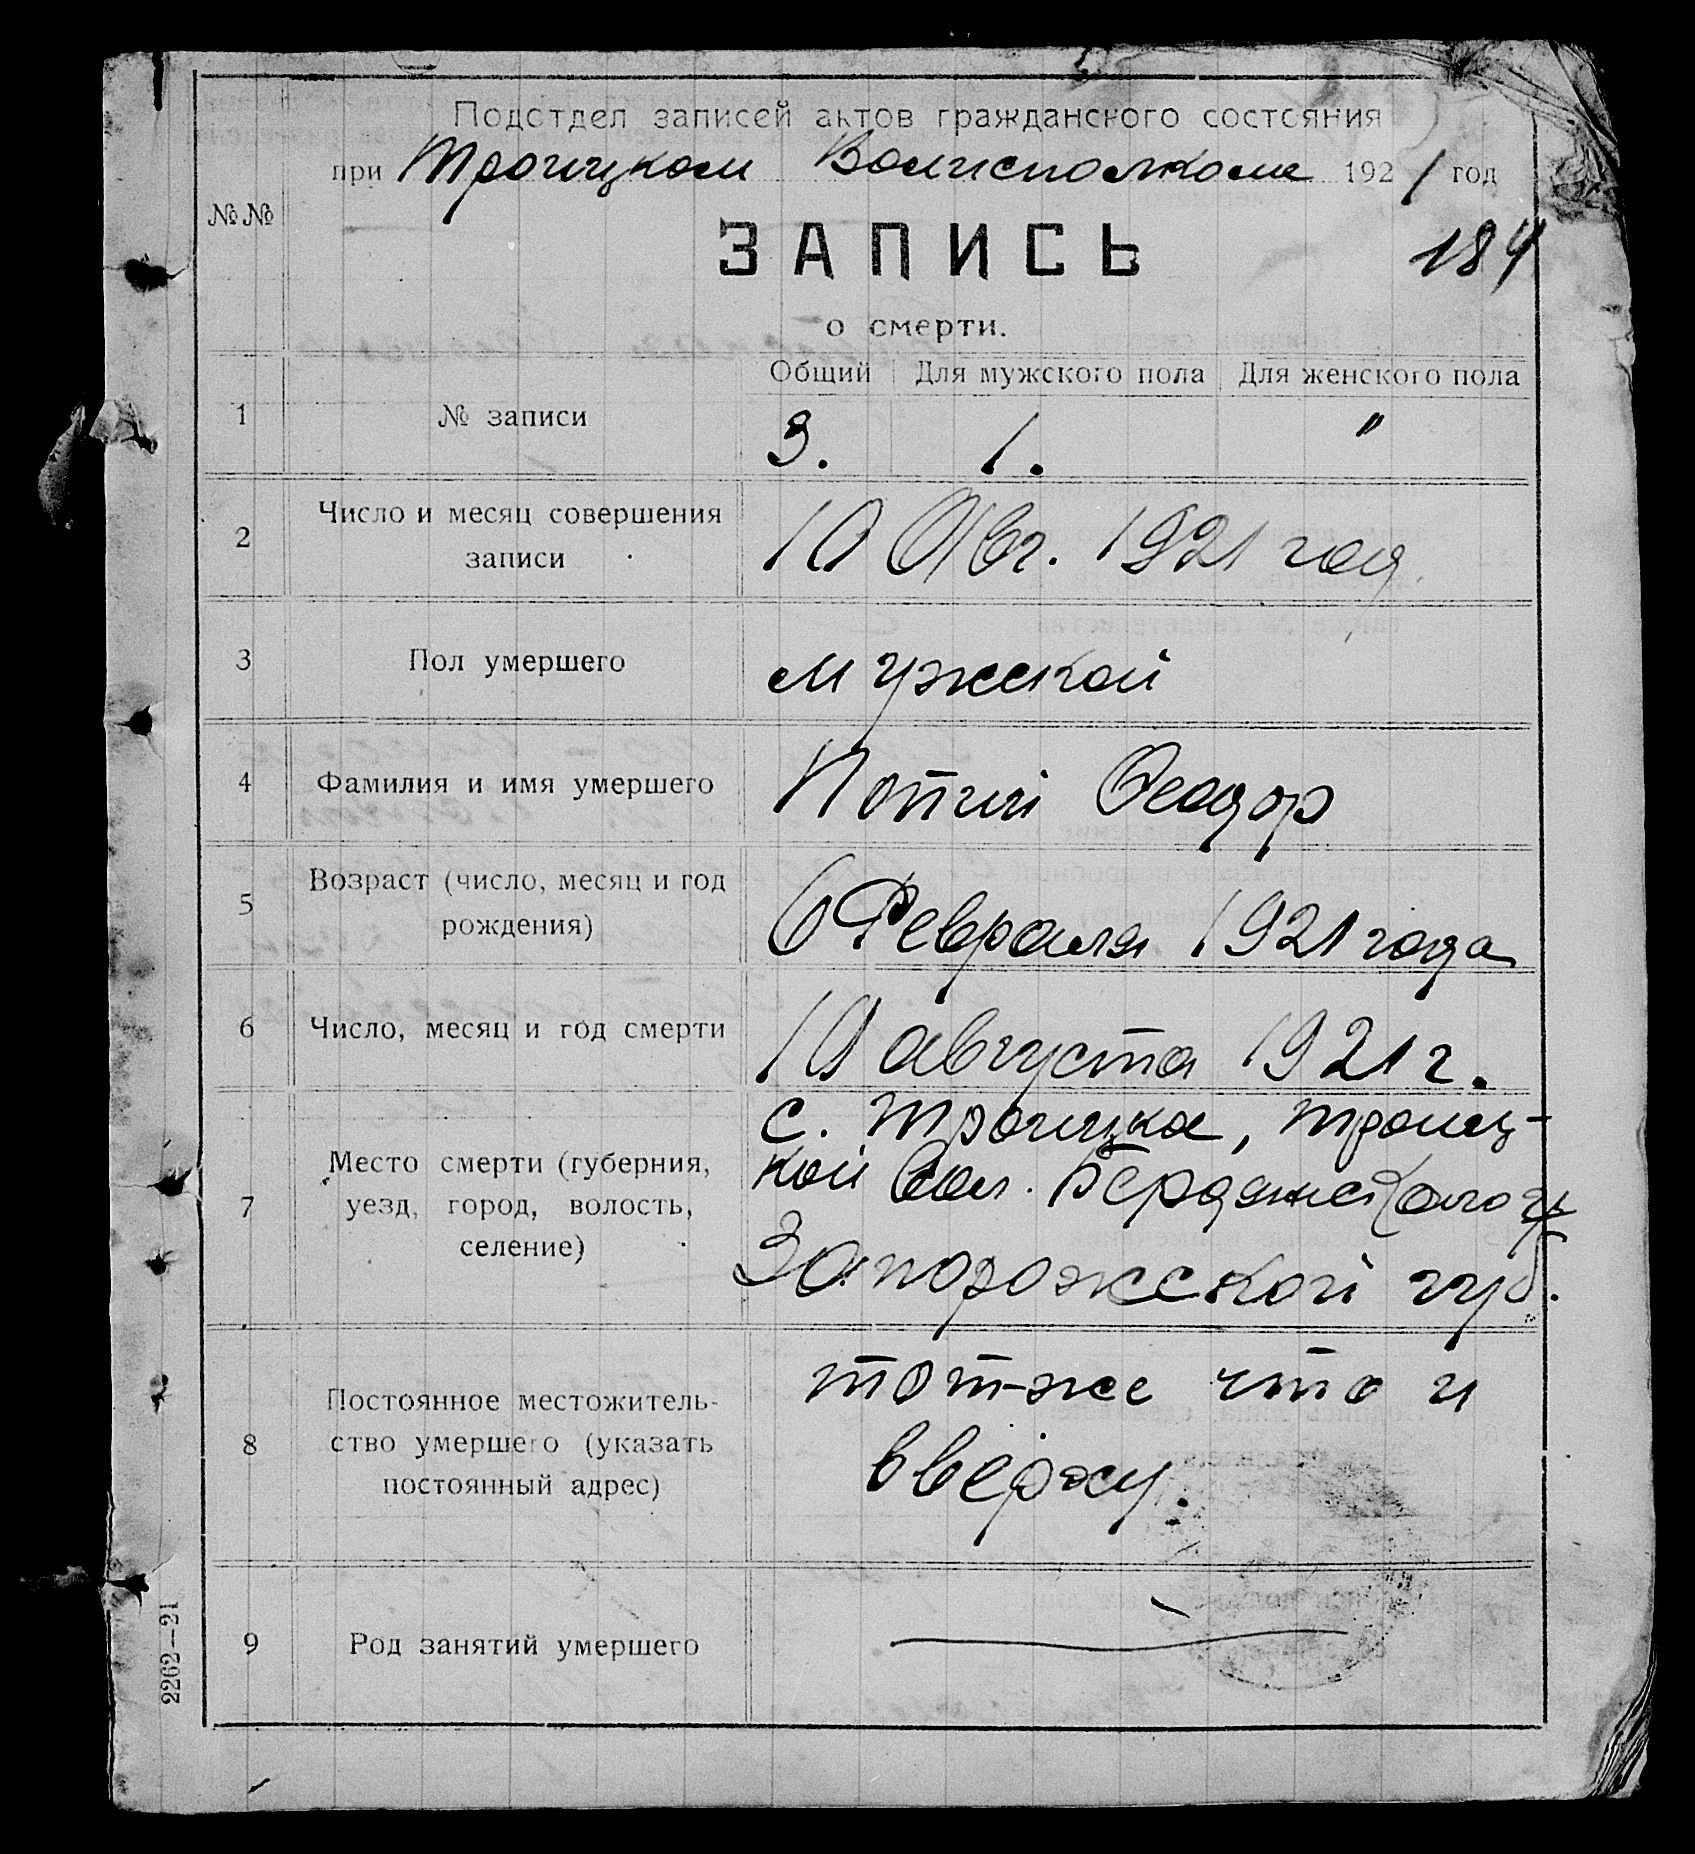 Подотдел записей актов гражданского состояния
при Троицком Волисполкоме 1921 год
№№
ЗАПИСЬ
184
о смерти.
Общий Для мужского пола Для женского пола
1 № записи 3. 1. "
2 Число и месяц совершения
записи
10 Авг. 1921 год
3 Пол умершего мужской
4 Фамилия и имя умершего Попий Феодор
5 Возраст (число, месяц и год
рождения)
6 Февраля 1921 года
6 Число, месяц и год смерти 10 августа 1921 г.
7 Место смерти (губерния,
уезд, город, волость,
селение)
с. Троицка, троиц-
кой вол. Бердянского
Запорожской губ.
8 Постоянное местожитель-
ство умершего (указать
постоянный адрес)
тот-же что и
вверху.
9 Род занятий умершего
2262—21